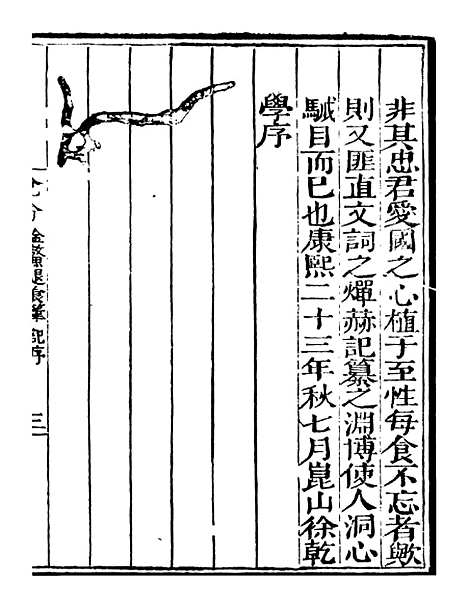 非其忠君愛國之心植于至性每食不忘者歟
則又匪直文詞之燀赫記纂之淵博使人洞心
駴目而已也康熙二十三年秋七月崑山徐乾
學序
金鰲退食筆記序
三